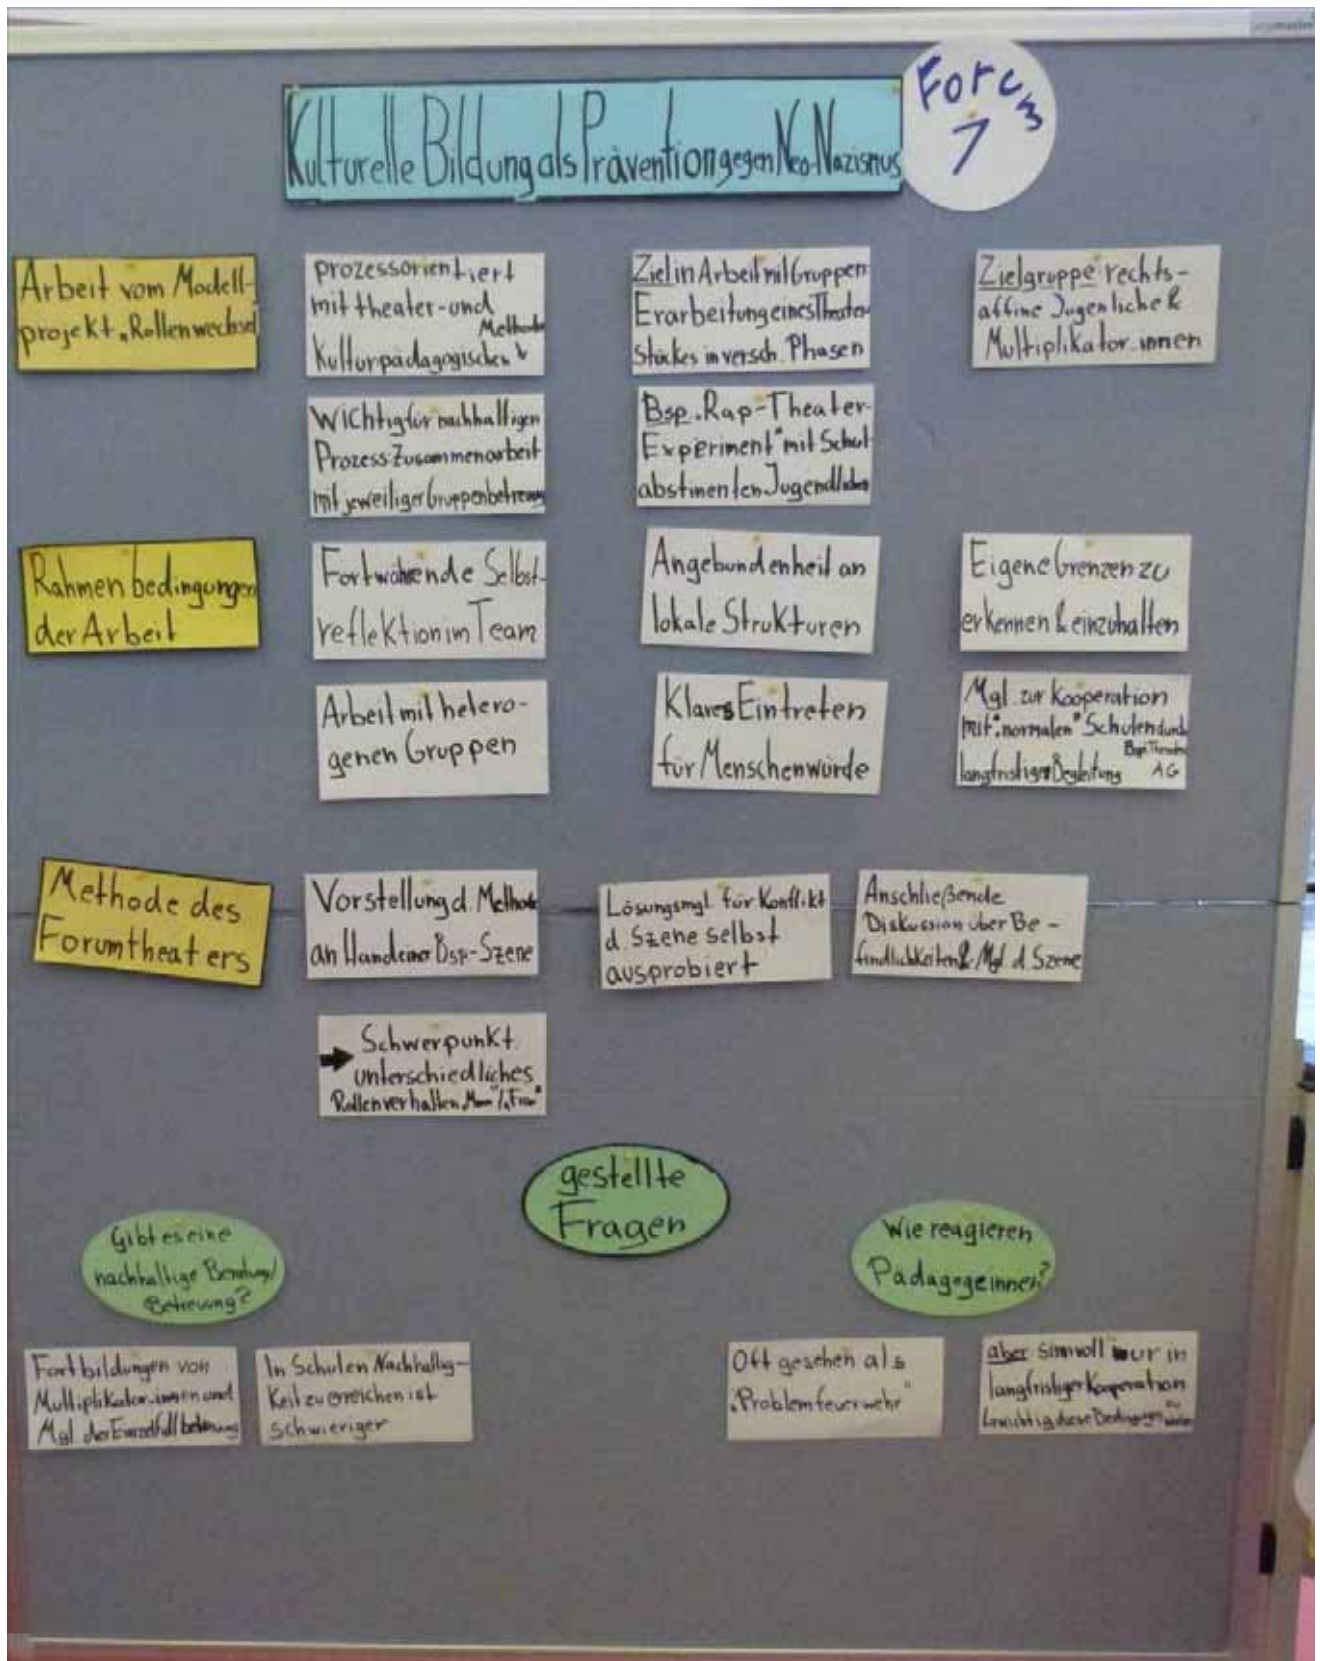 Kulturelle Bildung als Prävention gegen Neo-Nazismus
Forum
7
Arbeit vom Modell-
projekt „Rollenwechsel
prozessorientiert
mit theater-und
Methode
Kulturpädagogischer
Ziel in Arbeit mit Gruppen
Erarbeitung eines Theater-
Stückes in versch. Phasen
Zielgruppe rechts-
affine Jugenliche &
Multiplikator_innen
Wichtig für nachhaltigen
Prozess: Zusammenarbeit
mit jeweiliger Gruppenbetreuung
Bsp. „Rap-Theater-
Experiment" mit Schul-
abstinenten Jugendlichen
Rahmenbedingungen
der Arbeit
Fortwährende Selbst-
reflektion im Team
Angebundenheit an
lokale Strukturen
Eigene Grenzen zu
erkennen & einzuhalten
Arbeit mit hetero-
genen Gruppen
Klares Eintreten
für Menschenwürde
Mgl. zur Kooperation
mit „normalen" Schulen durch
Bsp. Theater
langfristige Begleitung AG
Methode des
Forumtheaters
Vorstellung d. Methode
an Hand einer Bsp-Szene
Lösungsmgl. für Konflikt
d. Szene selbst
ausprobiert
Anschließende
Diskussion über Be-
findlichkeiten & Mgl. d. Szene
Schwerpunkt
unterschiedliches
Rollenverhalten „Mann"/„Frau"
gestellte
Fragen
Gibt es eine
nachhaltige Beratung/
Betreuung?
Wie reagieren
Pädagogeinnen?
Fortbildungen von
Multiplikator_innen und
Mgl. der Einzelfallbetreuung
In Schulen Nachhaltig-
keit zu erreichen ist
schwieriger
Oft gesehen als
„Problemfeuerwehr"
aber sinnvoll nur in
langfristiger Kooperation
wichtig diese Bedingungen zu